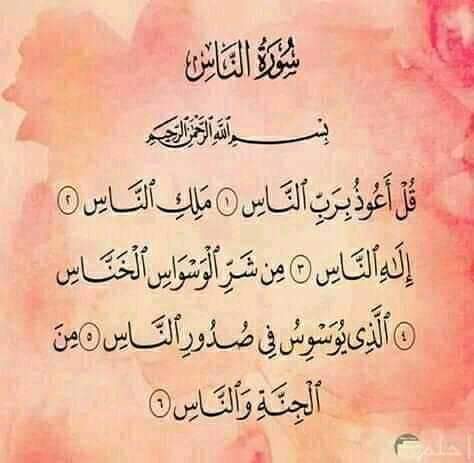 سُورَةُ النَّاسِ
بِسْمِ اللَّهِ الرَّحْمَٰنِ الرَّحِيمِ
قُلْ أَعُوذُ بِرَبِّ ٱلنَّاسِ ١ مَلِكِ ٱلنَّاسِ ٢
إِلَٰهِ ٱلنَّاسِ ٣ مِن شَرِّ ٱلْوَسْوَاسِ ٱلْخَنَّاسِ
٤ ٱلَّذِى يُوَسْوِسُ فِى صُدُورِ ٱلنَّاسِ ٥ مِنَ
ٱلْجِنَّةِ وَٱلنَّاسِ ٦
احلم